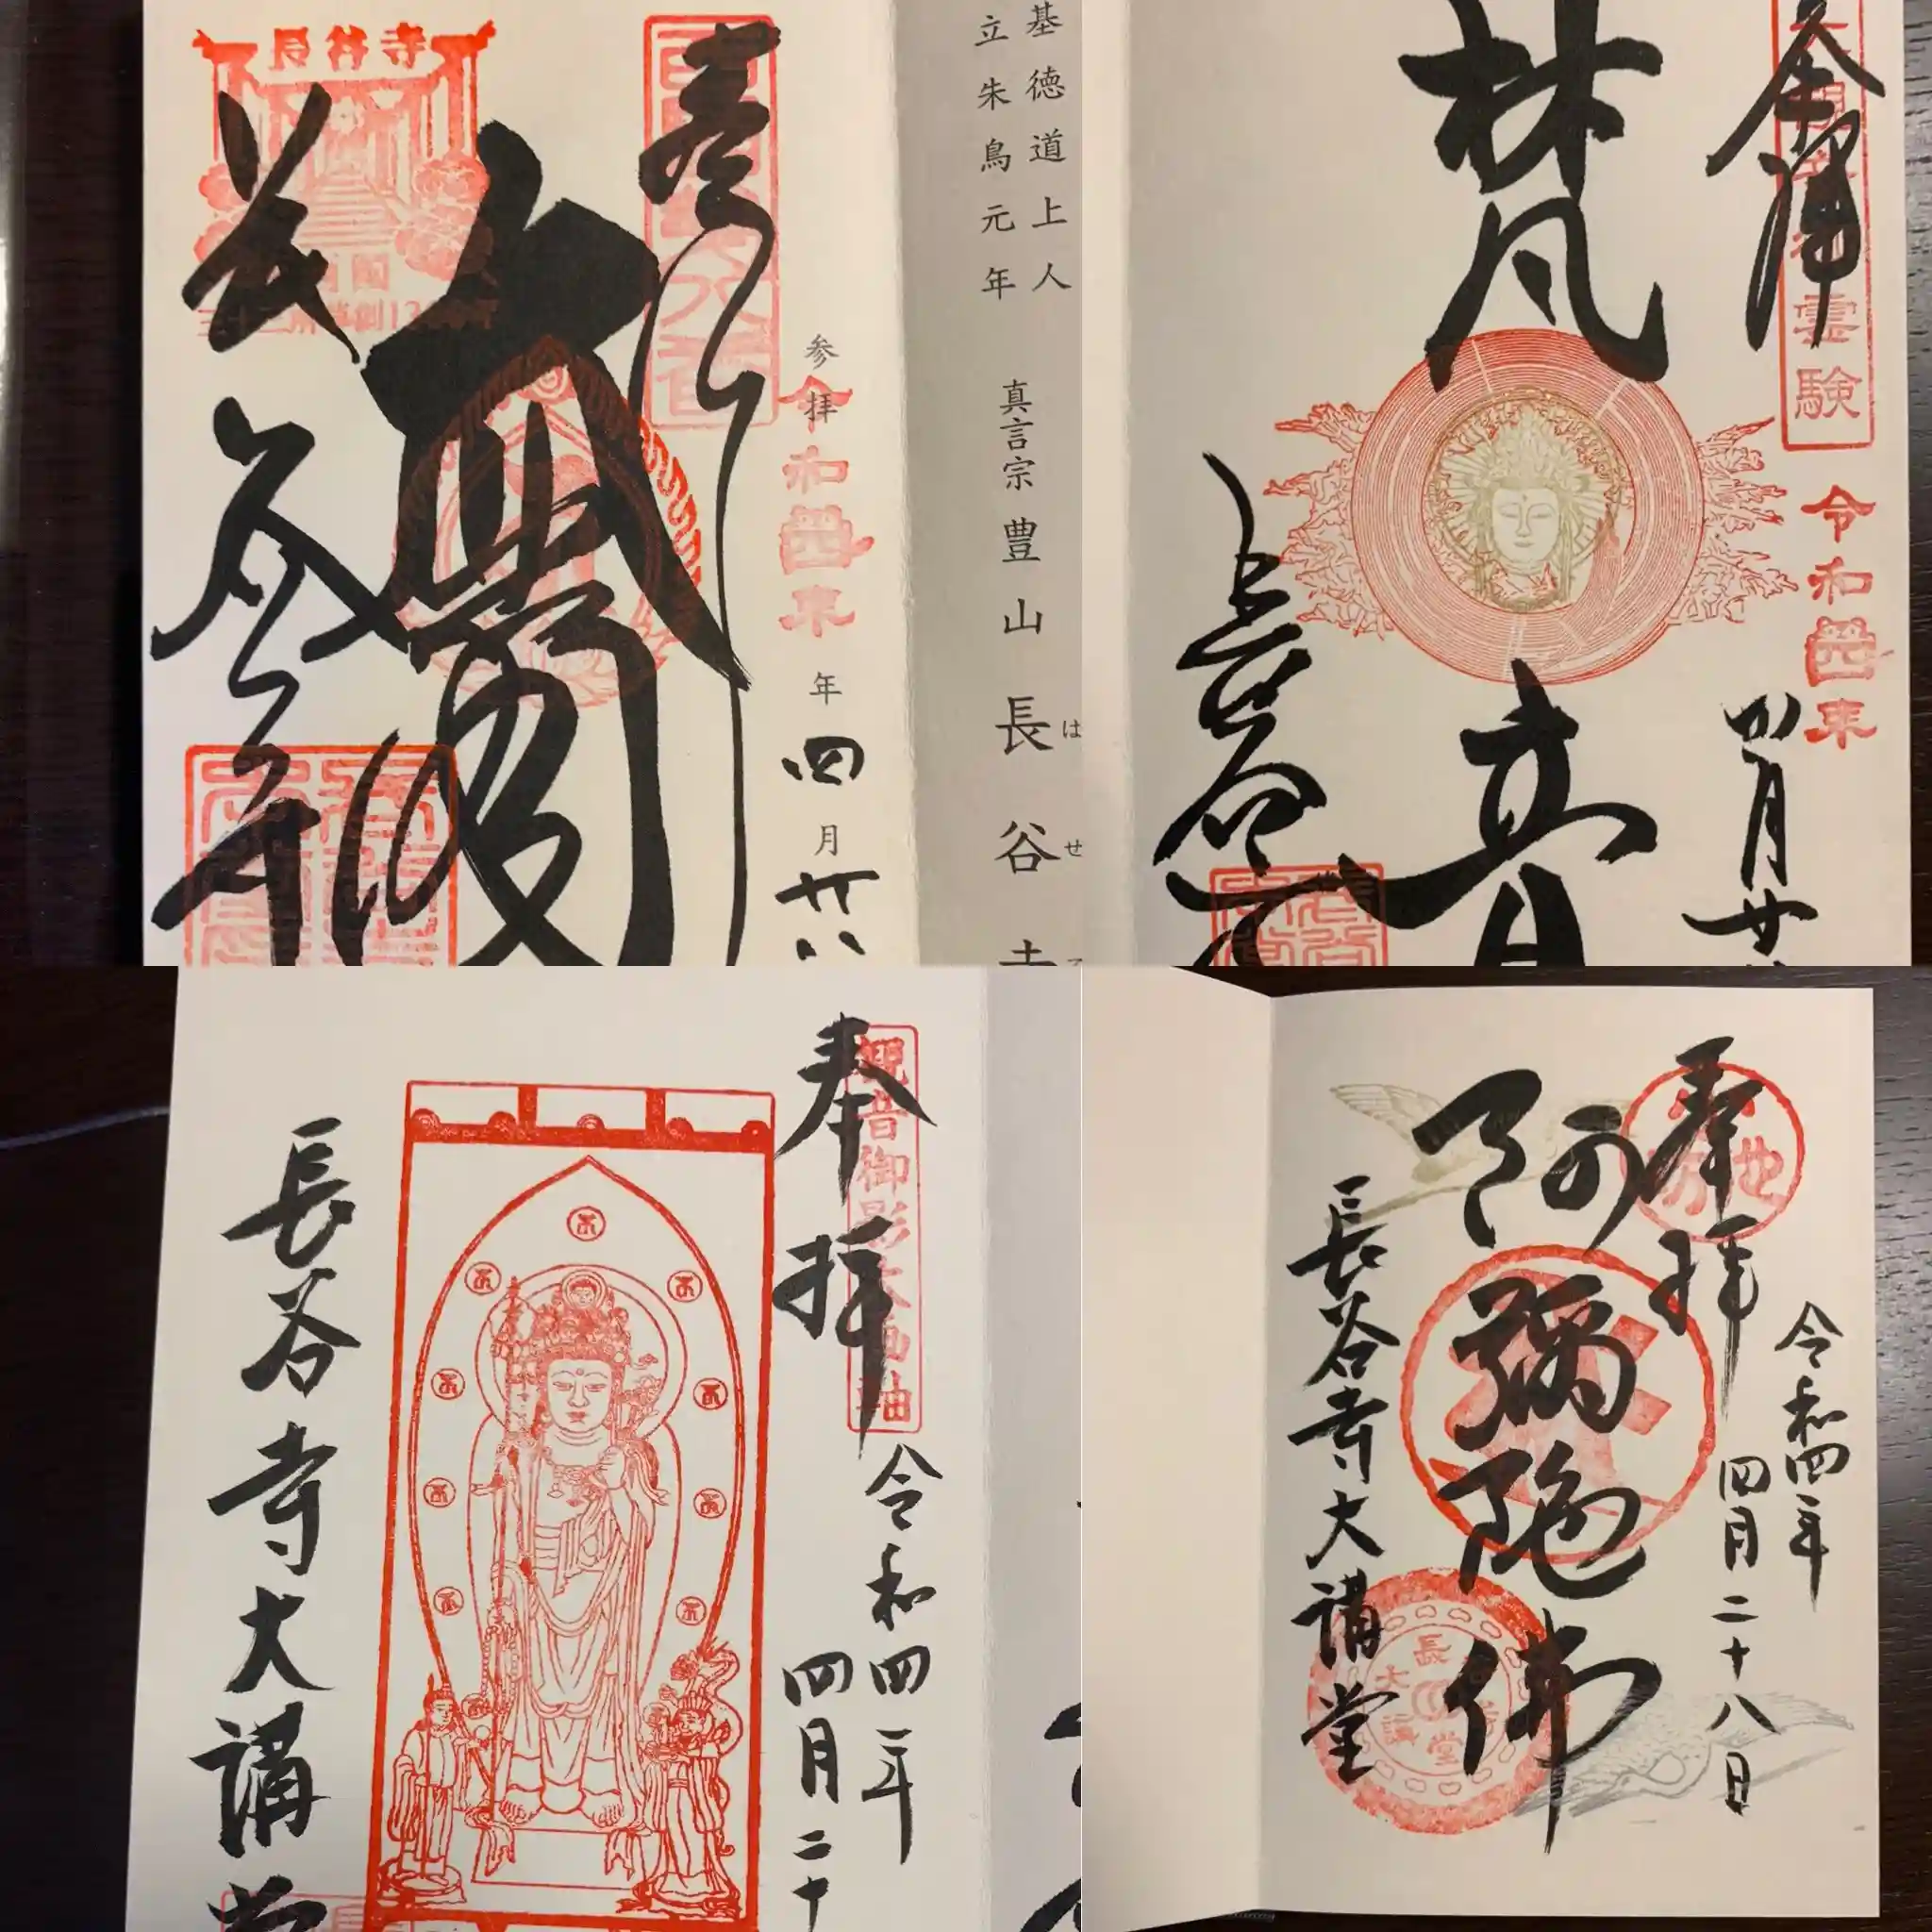 長谷寺
参拝
令和四年
年
四
月
廿八
長谷寺
開基徳道上人
朱鳥元年
真言宗豊山
長谷
はせ
霊験
梵音
令和四年
四月廿
奉拝
観音御影大画軸
令和四年
四月二十
長谷寺大講堂
奉拝
令和四年
四月二十八日
阿彌陀佛
長谷寺大講堂